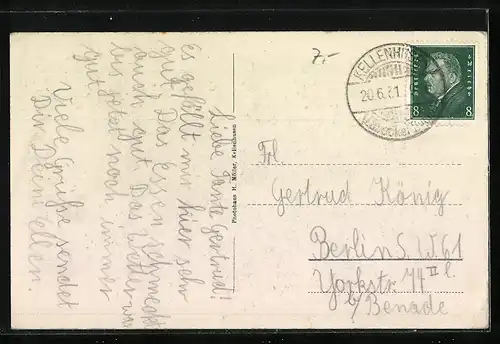 Liebe Tante Gertrud!
Es gefällt mir hier sehr
gut. Das Essen schmeckt
auch gut. Das Wetter war
bis jetzt noch immer
gut.
Viele Grüße sendet
Dir Deine Ellen.
Photohaus H. Möller, Kellenhusen
7,-
KELLENHUSEN
20.6.31
8 8
Frl.
Gertrud König
Berlin S.W. 61
Yorkstr. 74 II l.
b/ Benade